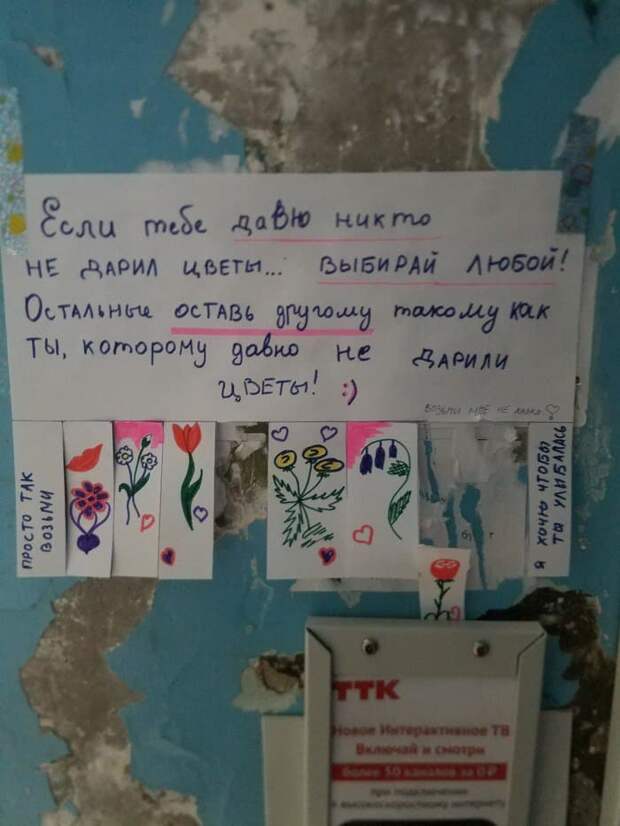 Если тебе давно никто
не дарил цветы... выбирай любой!
Остальные оставь другому такому как
ты, которому давно не дарили
цветы! :)
возьми мне не жалко
просто так
возьми
я хочу чтобы
ты улыбалась
ТТК
Новое Интерактивное ТВ
Включай и смотри
Более 50 каналов за 0 ₽
при подключении
к высокоскоростному интернету